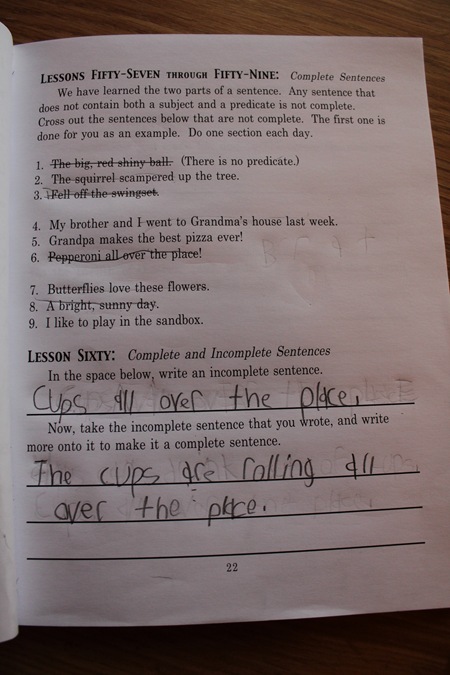 LESSONS FIFTY-SEVEN THROUGH FIFTY-NINE: Complete Sentences
We have learned the two parts of a sentence. Any sentence that
does not contain both a subject and a predicate is not complete.
Cross out the sentences below that are not complete. The first one is
done for you as an example. Do one section each day.
1. The big, red shiny ball. (There is no predicate.)
2. The squirrel scampered up the tree.
3. Fell off the swingset.
4. My brother and I went to Grandma's house last week.
5. Grandpa makes the best pizza ever!
6. Pepperoni all over the place!
7. Butterflies love these flowers.
8. A bright, sunny day.
9. I like to play in the sandbox.
LESSON SIXTY: Complete and Incomplete Sentences
In the space below, write an incomplete sentence.
Cups all over the place.
Now, take the incomplete sentence that you wrote, and write
more onto it to make it a complete sentence.
The cups are rolling all
over the place.
22